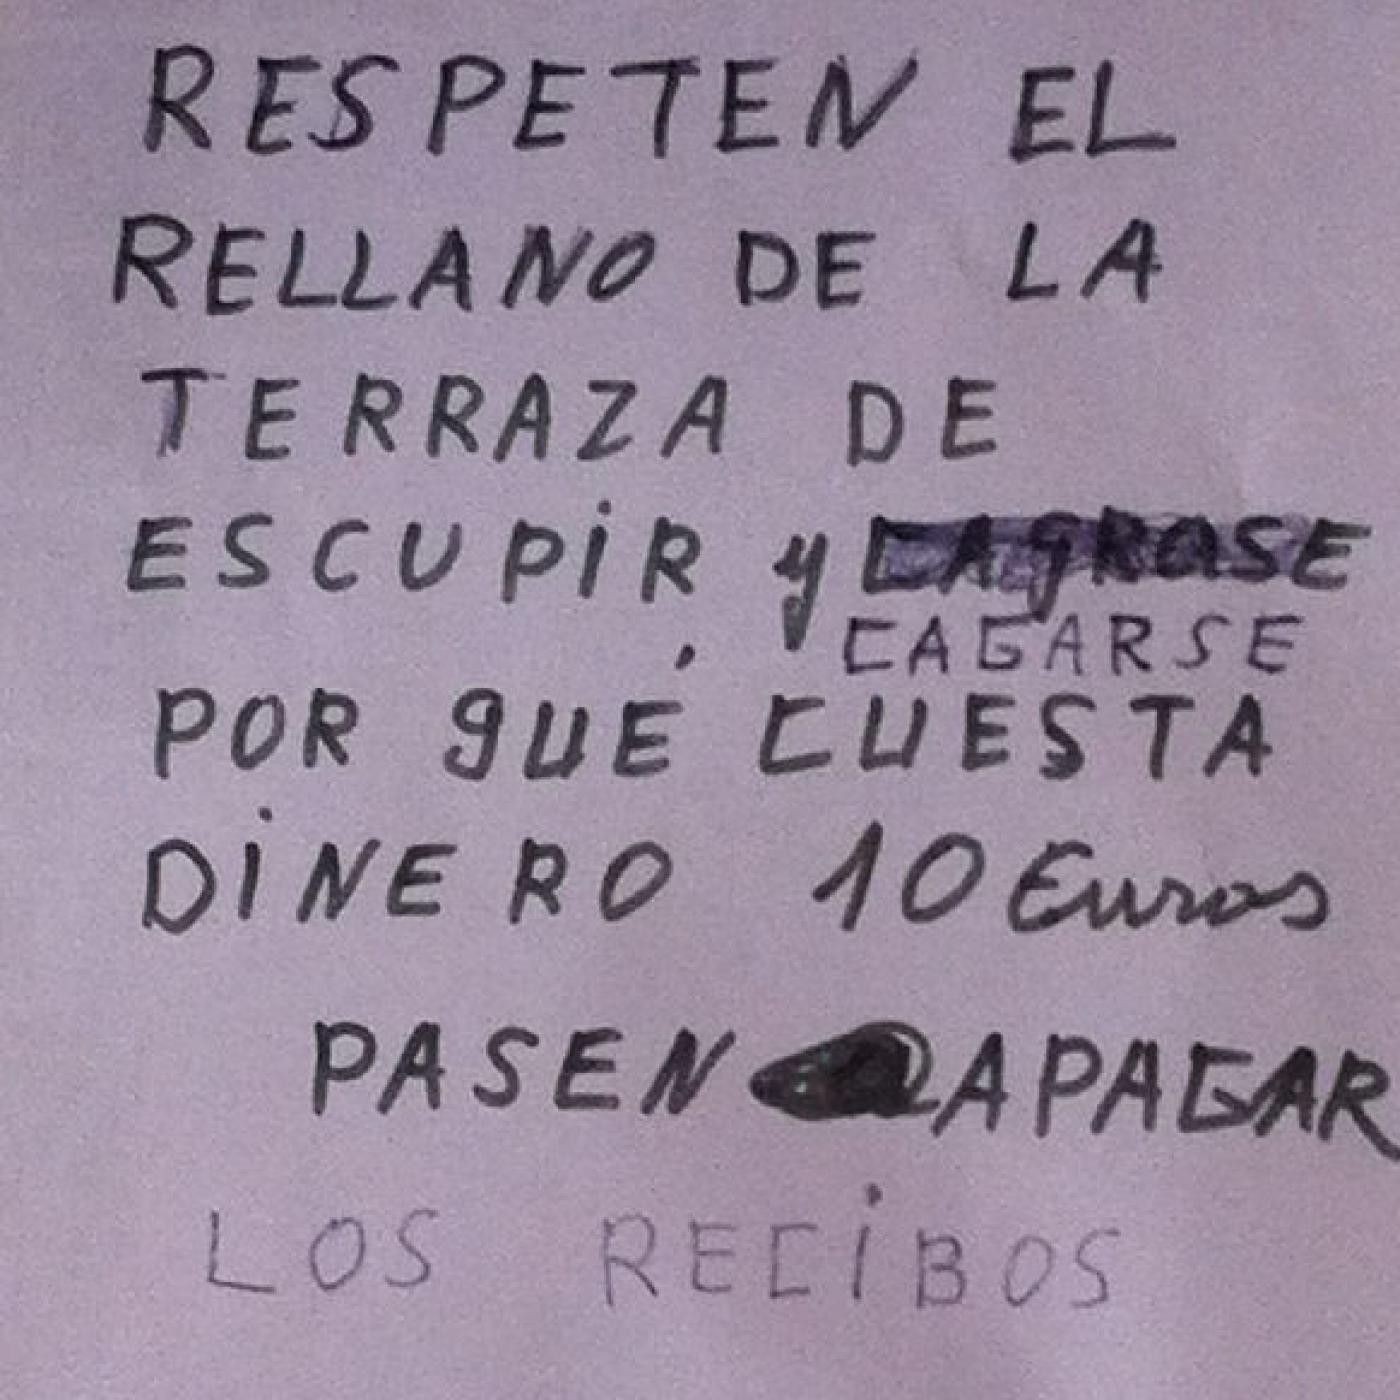 RESPETEN EL
RELLANO DE LA
TERRAZA DE
ESCUPiR y CAgRaSE
CAGARSE
POR qUÉ CUESTA
DiNERO 10 Euros
PASEN A PAGAR
LOS RECiBOS